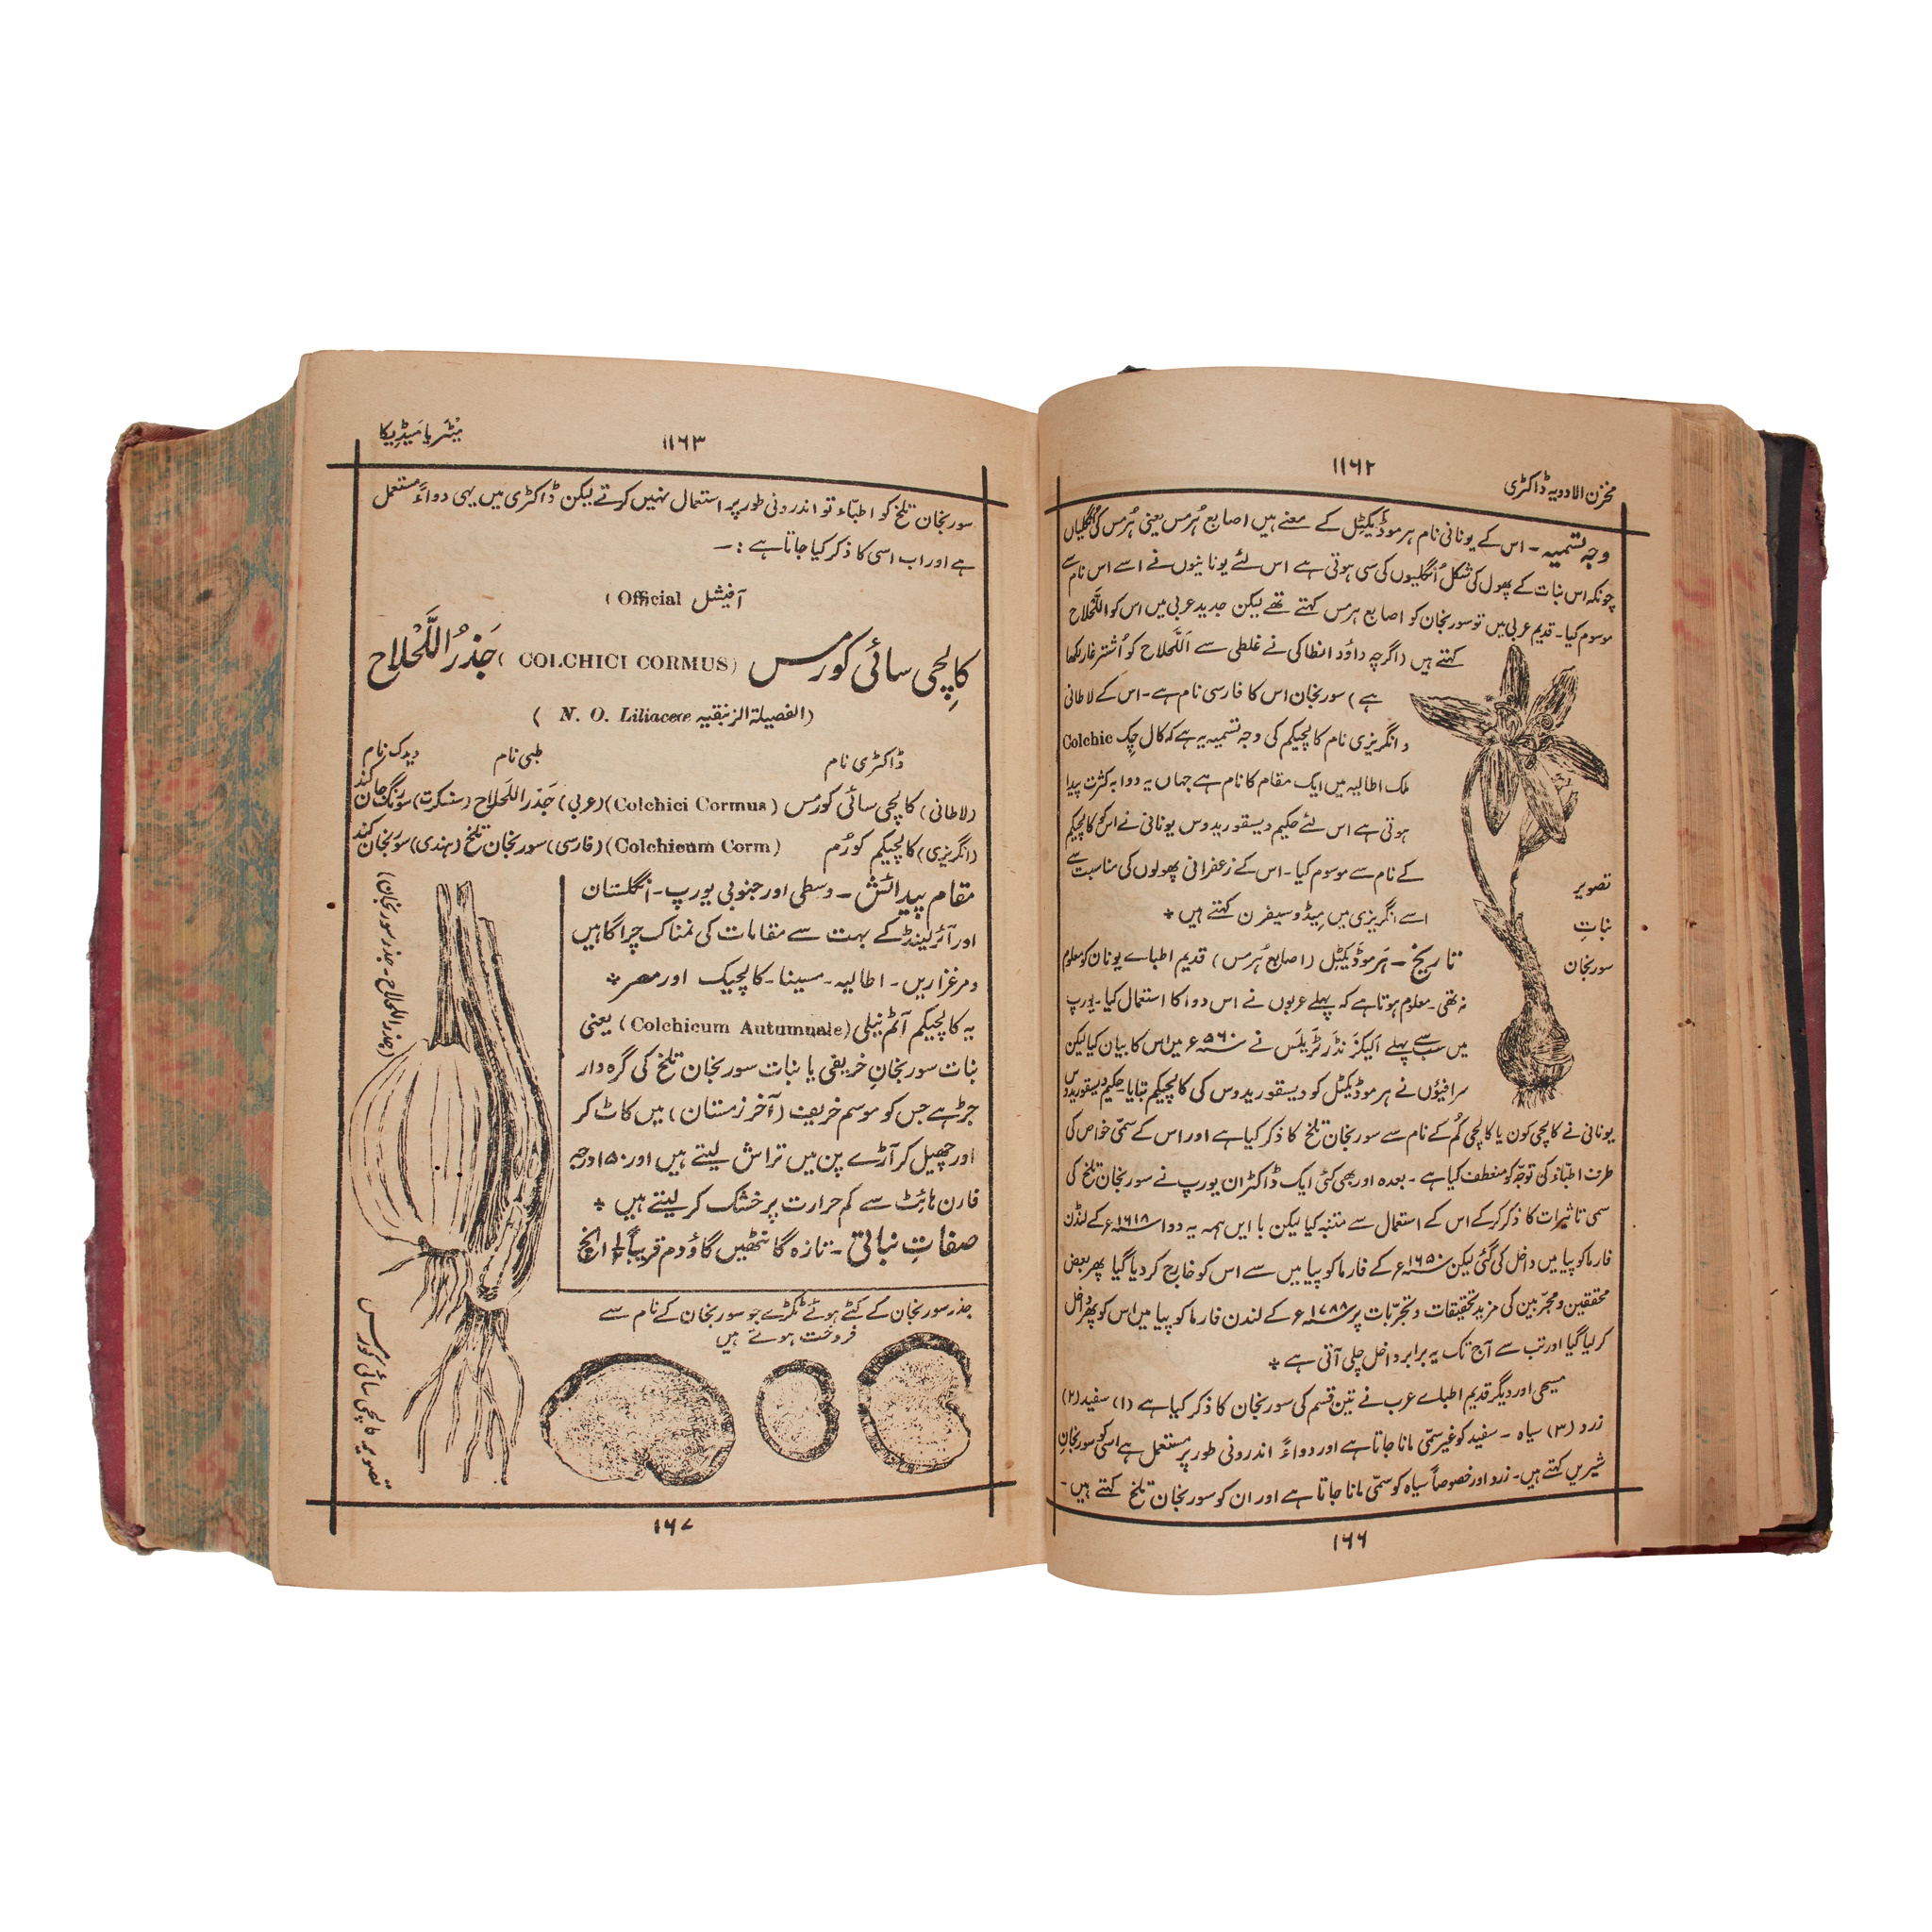 مخزن الادویہ ڈاکٹری
۱۱۶۲
وجہ تسمیہ - اس کے یونانی نام ہرموڈیکٹل کے معنے ہیں اصابع ہُرمس یعنی ہُرمس کی اُنگلیاں
چونکہ اس نبات کے پھول کی شکل اُنگلیوں کی سی ہوتی ہے اس لئے یونانیوں نے اسے اس نام سے
موسوم کیا - قدیم عربی میں تو سورنجان کو اصابع ہرمس کہتے تھے لیکن جدید عربی میں اس کو اللَّحْلاح
کہتے ہیں (اگرچہ داؤد انطاکی نے غلطی سے اَللَّحلاح کو اُشترغار لکھا
ہے) سورنجان اس کا فارسی نام ہے - اس کے لاطانی
و انگریزی نام کالچیکم کی وجہ تسمیہ یہ ہے کہ کال چِک Colchic
ملک اطالیہ میں ایک مقام کا نام ہے جہاں یہ دوا بہ کثرت پیدا
ہوتی ہے اس لئے حکیم دیسقوریدوس یونانی نے اس کو کالچیکم
کے نام سے موسوم کیا - اس کے زعفرانی پھولوں کی مناسبت سے
اسے انگریزی میں میڈوسیفرن کہتے ہیں *
تصویر
نباتِ
سورنجان
تاریخ - ہَرموڈَیکٹِل (اصابع ہُرمس) قدیم اطباے یونان کو معلوم
نہ تھی - معلوم ہوتا ہے کہ پہلے عربوں نے اس دوا کا استعمال کیا - یورپ
میں سب سے پہلے اَلیکزَنڈَرٹریلَس نے ۵۶۰ء میں اس کا بیان کیا لیکن
سرافیؤں نے ہرموڈیکٹل کو دیسقوریدوس کی کالچیکم بتایا - حکیم دیسقوریدوس
یونانی نے کالچی کون یا کالچی کُم کے نام سے سورنجان تلخ کا ذکر کیا ہے اور اس کے سمّی خواص کی
طرف اطبّاء کی توجّہ کو منعطف کیا ہے - بعدہ اور بھی کئی ایک ڈاکٹران یورپ نے سورنجان تلخ کی
سمی تاثیرات کا ذکر کرکے اس کے استعمال سے متنبہ کیا لیکن با ایں ہمہ یہ دوا ۱۶۱۸ء کے لنڈن
فارماکوپیا میں داخل کی گئی لیکن ۱۶۵۰ء کے فارماکوپیا میں سے اس کو خارج کر دیا گیا پھر بعض
محققین و مجرّبین کی مزید تحقیقات و تجربات پر ۱۷۸۸ء کے لندن فارماکوپیا میں اس کو پھر داخل
کر لیا گیا اور تب سے آج تک یہ برابر داخل چلی آتی ہے *
مسیحی اور دیگر قدیم اطباے عرب نے تین قسم کی سورنجان کا ذکر کیا ہے (۱) سفید (۲)
زرد (۳) سیاہ - سفید کو غیر سمّی مانا جاتا ہے اور دواءً اندرونی طور پر مستعمل ہے اسی کو سورنجان
شیریں کہتے ہیں - زرد اور خصوصاً سیاہ کو سمّی مانا جاتا ہے اور ان کو سورنجان تلخ کہتے ہیں -
۱۶۶
۱۱۶۳
میٹریا میڈیکا
سورنجان تلخ کو اطبّاء تو اندرونی طور پر استعمال نہیں کرتے لیکن ڈاکٹری میں یہی دواءً مستعمل
ہے اور اب اسی کا ذکر کیا جاتا ہے :-
آفیشل Official )
کالچی سائی کورمس (COLCHICI CORMUS) جَذرُ اللَّحْلاح
(الفصیلۃ الزنبقیہ N. O. Liliaceœ )
ڈاکٹری نام طبی نام ویدک نام
(لاطانی) کالچی سائی کورمس (Colchici Cormus) (عربی) جَذر اللحلاح (سنسکرت) سورنگ جان کند
(انگریزی) کالچیکم کورُم (Colchicum Corm) (فارسی) سورنجان تلخ (ہندی) سورنجان کند
مقام پیدائش - وسطی اور جنوبی یورپ - انگلستان
اور آئرلینڈ کے بہت سے مقامات کی نمناک چراگاہیں
و مرغزاریں - اطالیہ - مسینا - کالچیک اور مصر *
یہ کالچیکم آٹم نیلی (Colchicum Autumnale) یعنی
نبات سورنجانِ خریفی یا نبات سورنجان تلخ کی گرہ دار
جڑ ہے جس کو موسم خریف (آخر زمستان) میں کاٹ کر
اور چھیل کر آڑے پن میں تراش لیتے ہیں اور ۱۵۰ درجہ
فارن ہائٹ سے کم حرارت پر خشک کر لیتے ہیں *
صفاتِ نباتی - تازہ گانٹھیں گاؤدم قریباً انچ
جذر سورنجان کے کٹے ہوئے ٹکڑے جو سورنجان کے نام سے
فروخت ہوتے ہیں
(جذر اللحلاح - جذر سورنجان)
تصویر کالچی سائی کورمس
۱۶۷